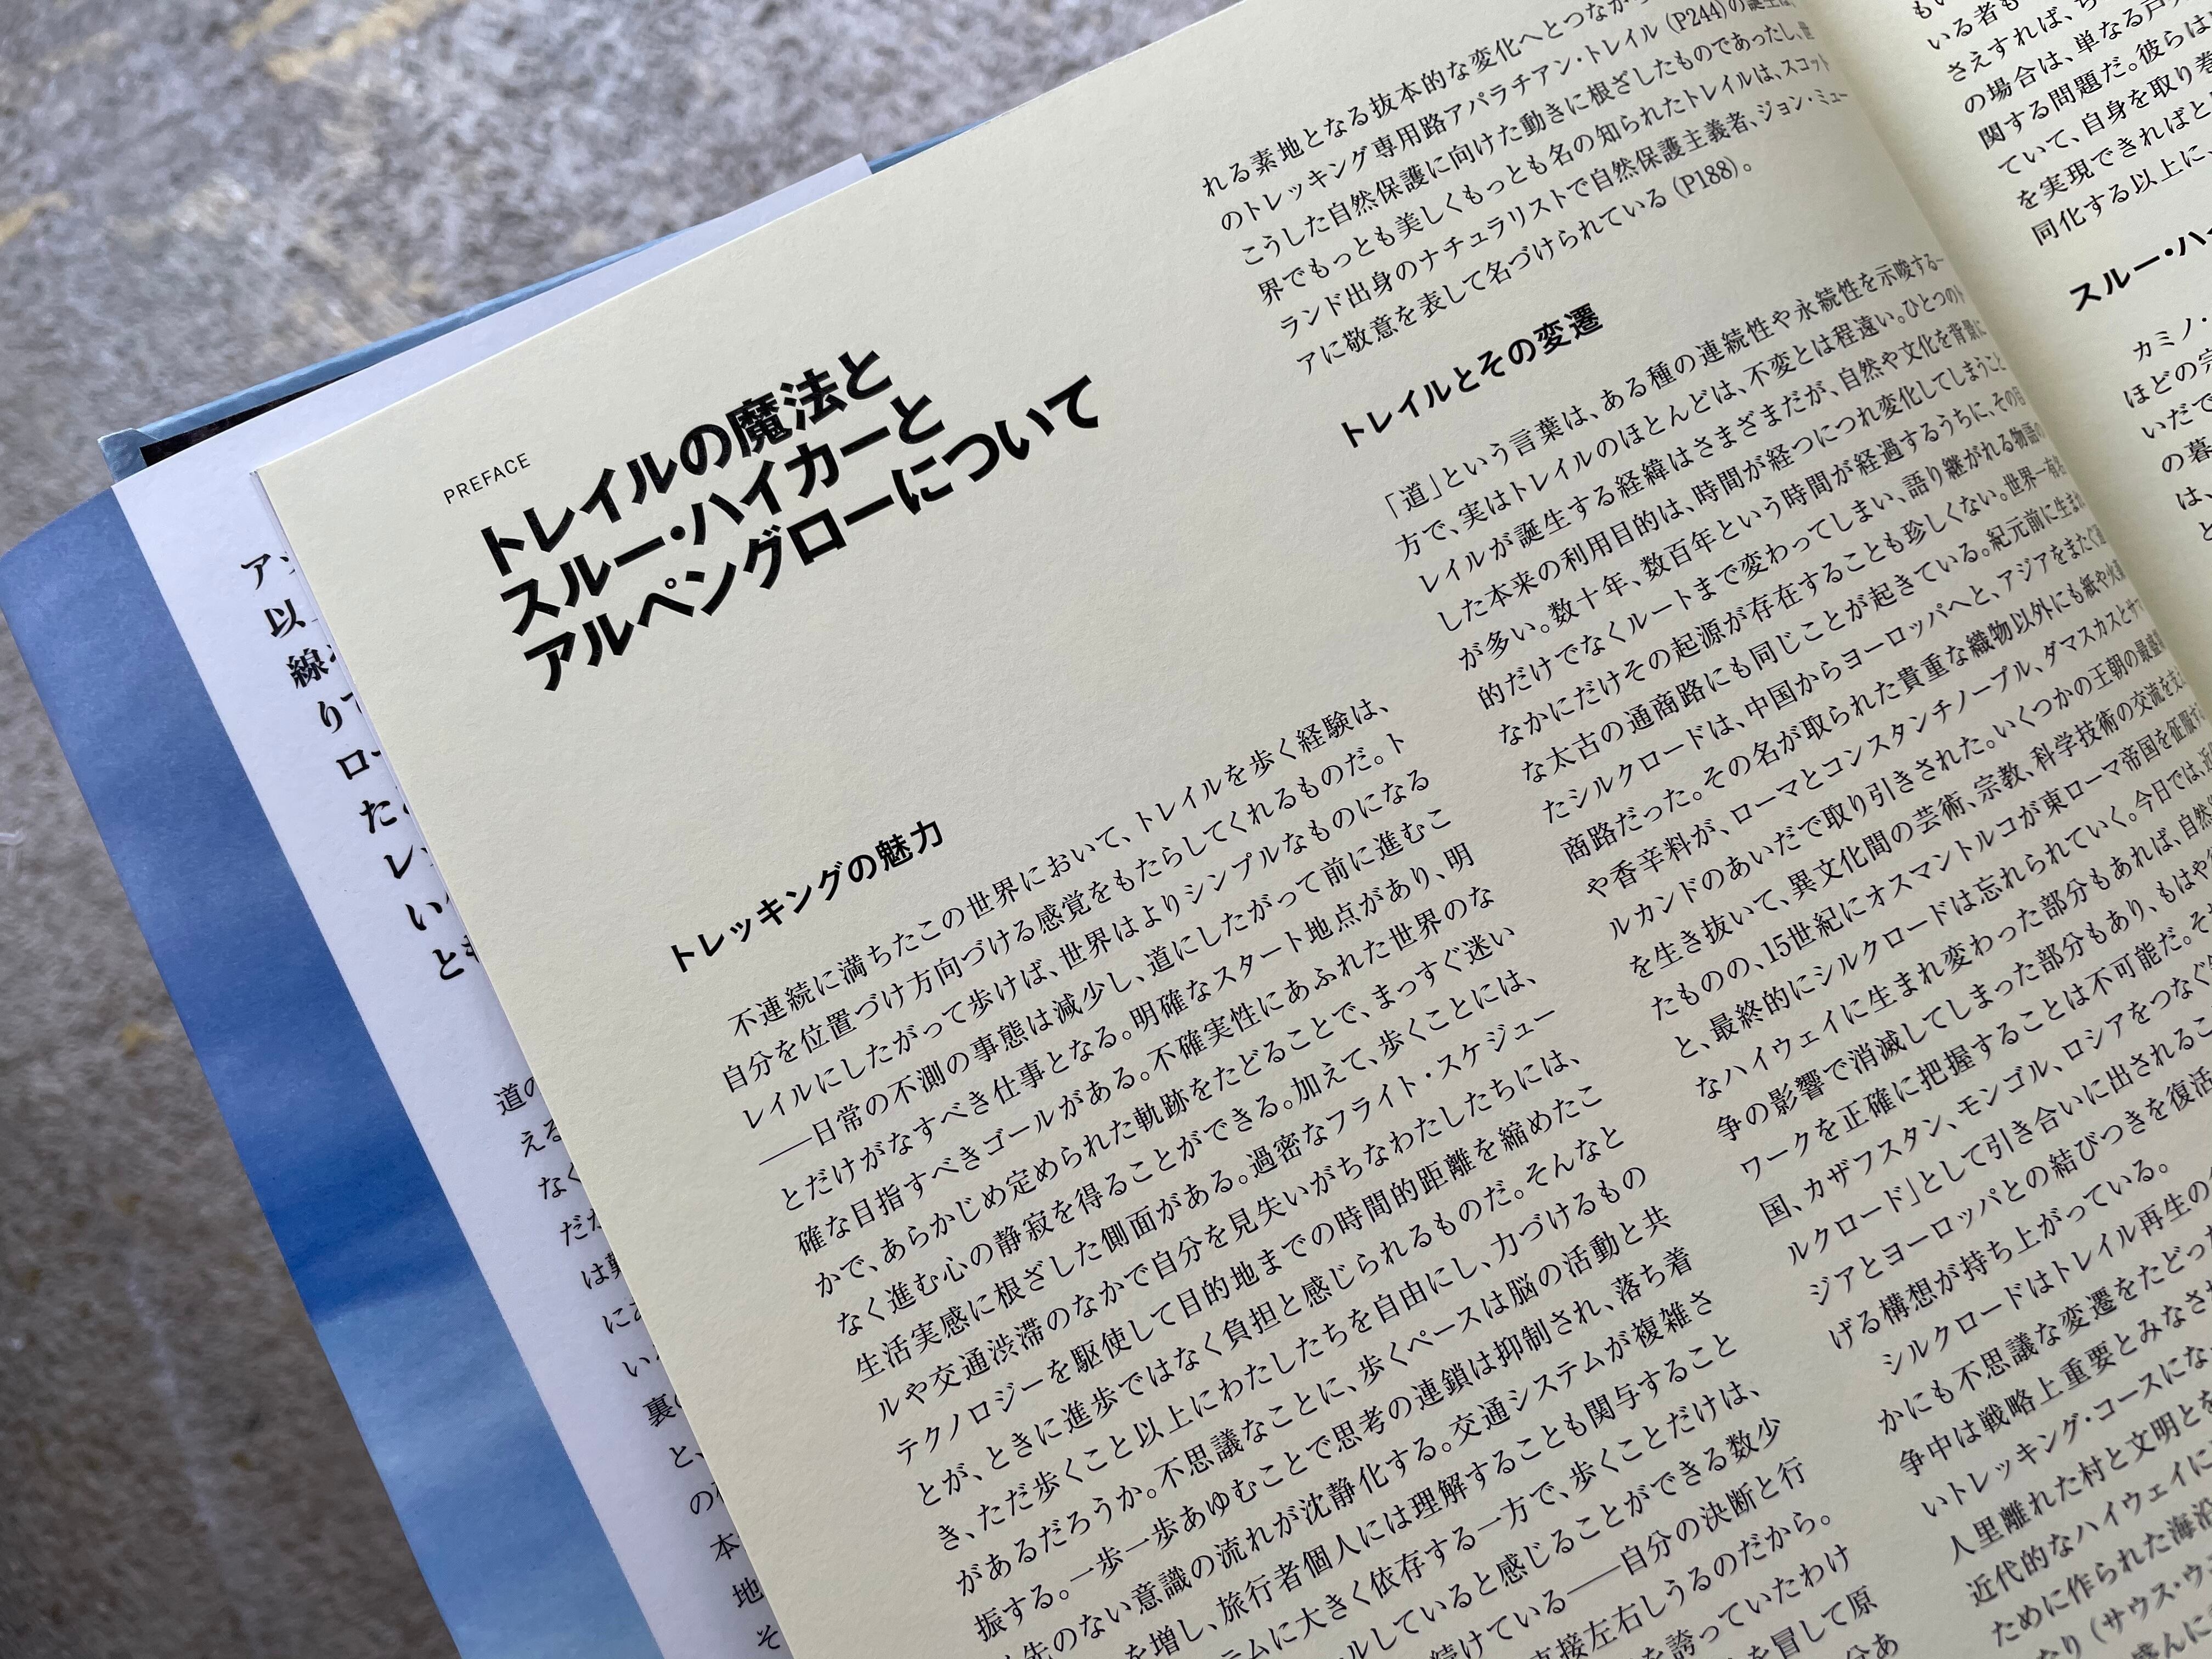 PREFACE
トレイルの魔法と
スルー・ハイカーと
アルペングローについて
トレッキングの魅力
不連続に満ちたこの世界において、トレイルを歩く経験は、
自分を位置づけ方向づける感覚をもたらしてくれるものだ。ト
レイルにしたがって歩けば、世界はよりシンプルなものになる
――日常の不測の事態は減少し、道にしたがって前に進むこ
とだけがなすべき仕事となる。明確なスタート地点があり、明
確な目指すべきゴールがある。不確実性にあふれた世界のな
かで、あらかじめ定められた軌跡をたどることで、まっすぐ迷い
なく進む心の静寂を得ることができる。加えて、歩くことには、
生活実感に根ざした側面がある。過密なフライト・スケジュー
ルや交通渋滞のなかで自分を見失いがちなわたしたちには、
テクノロジーを駆使して目的地までの時間的距離を縮めたこ
とが、ときに進歩ではなく負担と感じられるものだ。そんなと
き、ただ歩くこと以上にわたしたちを自由にし、力づけるもの
があるだろうか。不思議なことに、歩くペースは脳の活動と共
振する。一歩一歩あゆむことで思考の連鎖は抑制され、落ち着
先のない意識の流れが沈静化する。交通システムが複雑さ
を増し、旅行者個人には理解することも関与すること
テムに大きく依存する一方で、歩くことだけは、
ルしていると感じることができる数少
続けている――自分の決断と行
直接左右しうるのだから。
を誇っていたわけ
を冒して原
分あ
れる素地となる抜本的な変化へとつなが
のトレッキング専用路アパラチアン・トレイル(P244)の誕生は、
こうした自然保護に向けた動きに根ざしたものであったし、世
界でもっとも美しくもっとも名の知られたトレイルは、スコット
ランド出身のナチュラリストで自然保護主義者、ジョン・ミュー
アに敬意を表して名づけられている(P188)。
トレイルとその変遷
「道」という言葉は、ある種の連続性や永続性を示唆する一
方で、実はトレイルのほとんどは、不変とは程遠い。ひとつのト
レイルが誕生する経緯はさまざまだが、自然や文化を背景に
した本来の利用目的は、時間が経つにつれ変化してしまうこと
が多い。数十年、数百年という時間が経過するうちに、その目
的だけでなくルートまで変わってしまい、語り継がれる物語の
なかにだけその起源が存在することも珍しくない。世界一有名
な太古の通商路にも同じことが起きている。紀元前に生まれ
たシルクロードは、中国からヨーロッパへと、アジアをまたぐ通
商路だった。その名が取られた貴重な織物以外にも紙や火薬
や香辛料が、ローマとコンスタンチノープル、ダマスカスとサマ
ルカンドのあいだで取り引きされた。いくつかの王朝の最盛期
を生き抜いて、異文化間の芸術、宗教、科学技術の交流を支え
たものの、15世紀にオスマントルコが東ローマ帝国を征服する
と、最終的にシルクロードは忘れられていく。今日では、近
なハイウェイに生まれ変わった部分もあれば、自然
争の影響で消滅してしまった部分もあり、もはや
ワークを正確に把握することは不可能だ。そ
国、カザフスタン、モンゴル、ロシアをつなぐ
ルクロード」として引き合いに出されるこ
ジアとヨーロッパとの結びつきを復活
げる構想が持ち上がっている。
シルクロードはトレイル再生の
かにも不思議な変遷をたどった
争中は戦略上重要とみなさ
いトレッキング・コースにな
人里離れた村と文明とを
近代的なハイウェイに
ために作られた海沿
なり(サウス・ウ
盛んに
いる者も
さえすれば、ち
の場合は、単なる戸
関する問題だ。彼らは
ていて、自身を取り巻
を実現できればと
同化する以上に、
スルー・ハイ
カミノ・
ほどの完
いだで
の暮
は、
と
アッ
以上
線や
りて
ロー
たど
レッ
い
とも
道の
える
なく
だが
は
に
い
裏の
と、
の
本
地
そ